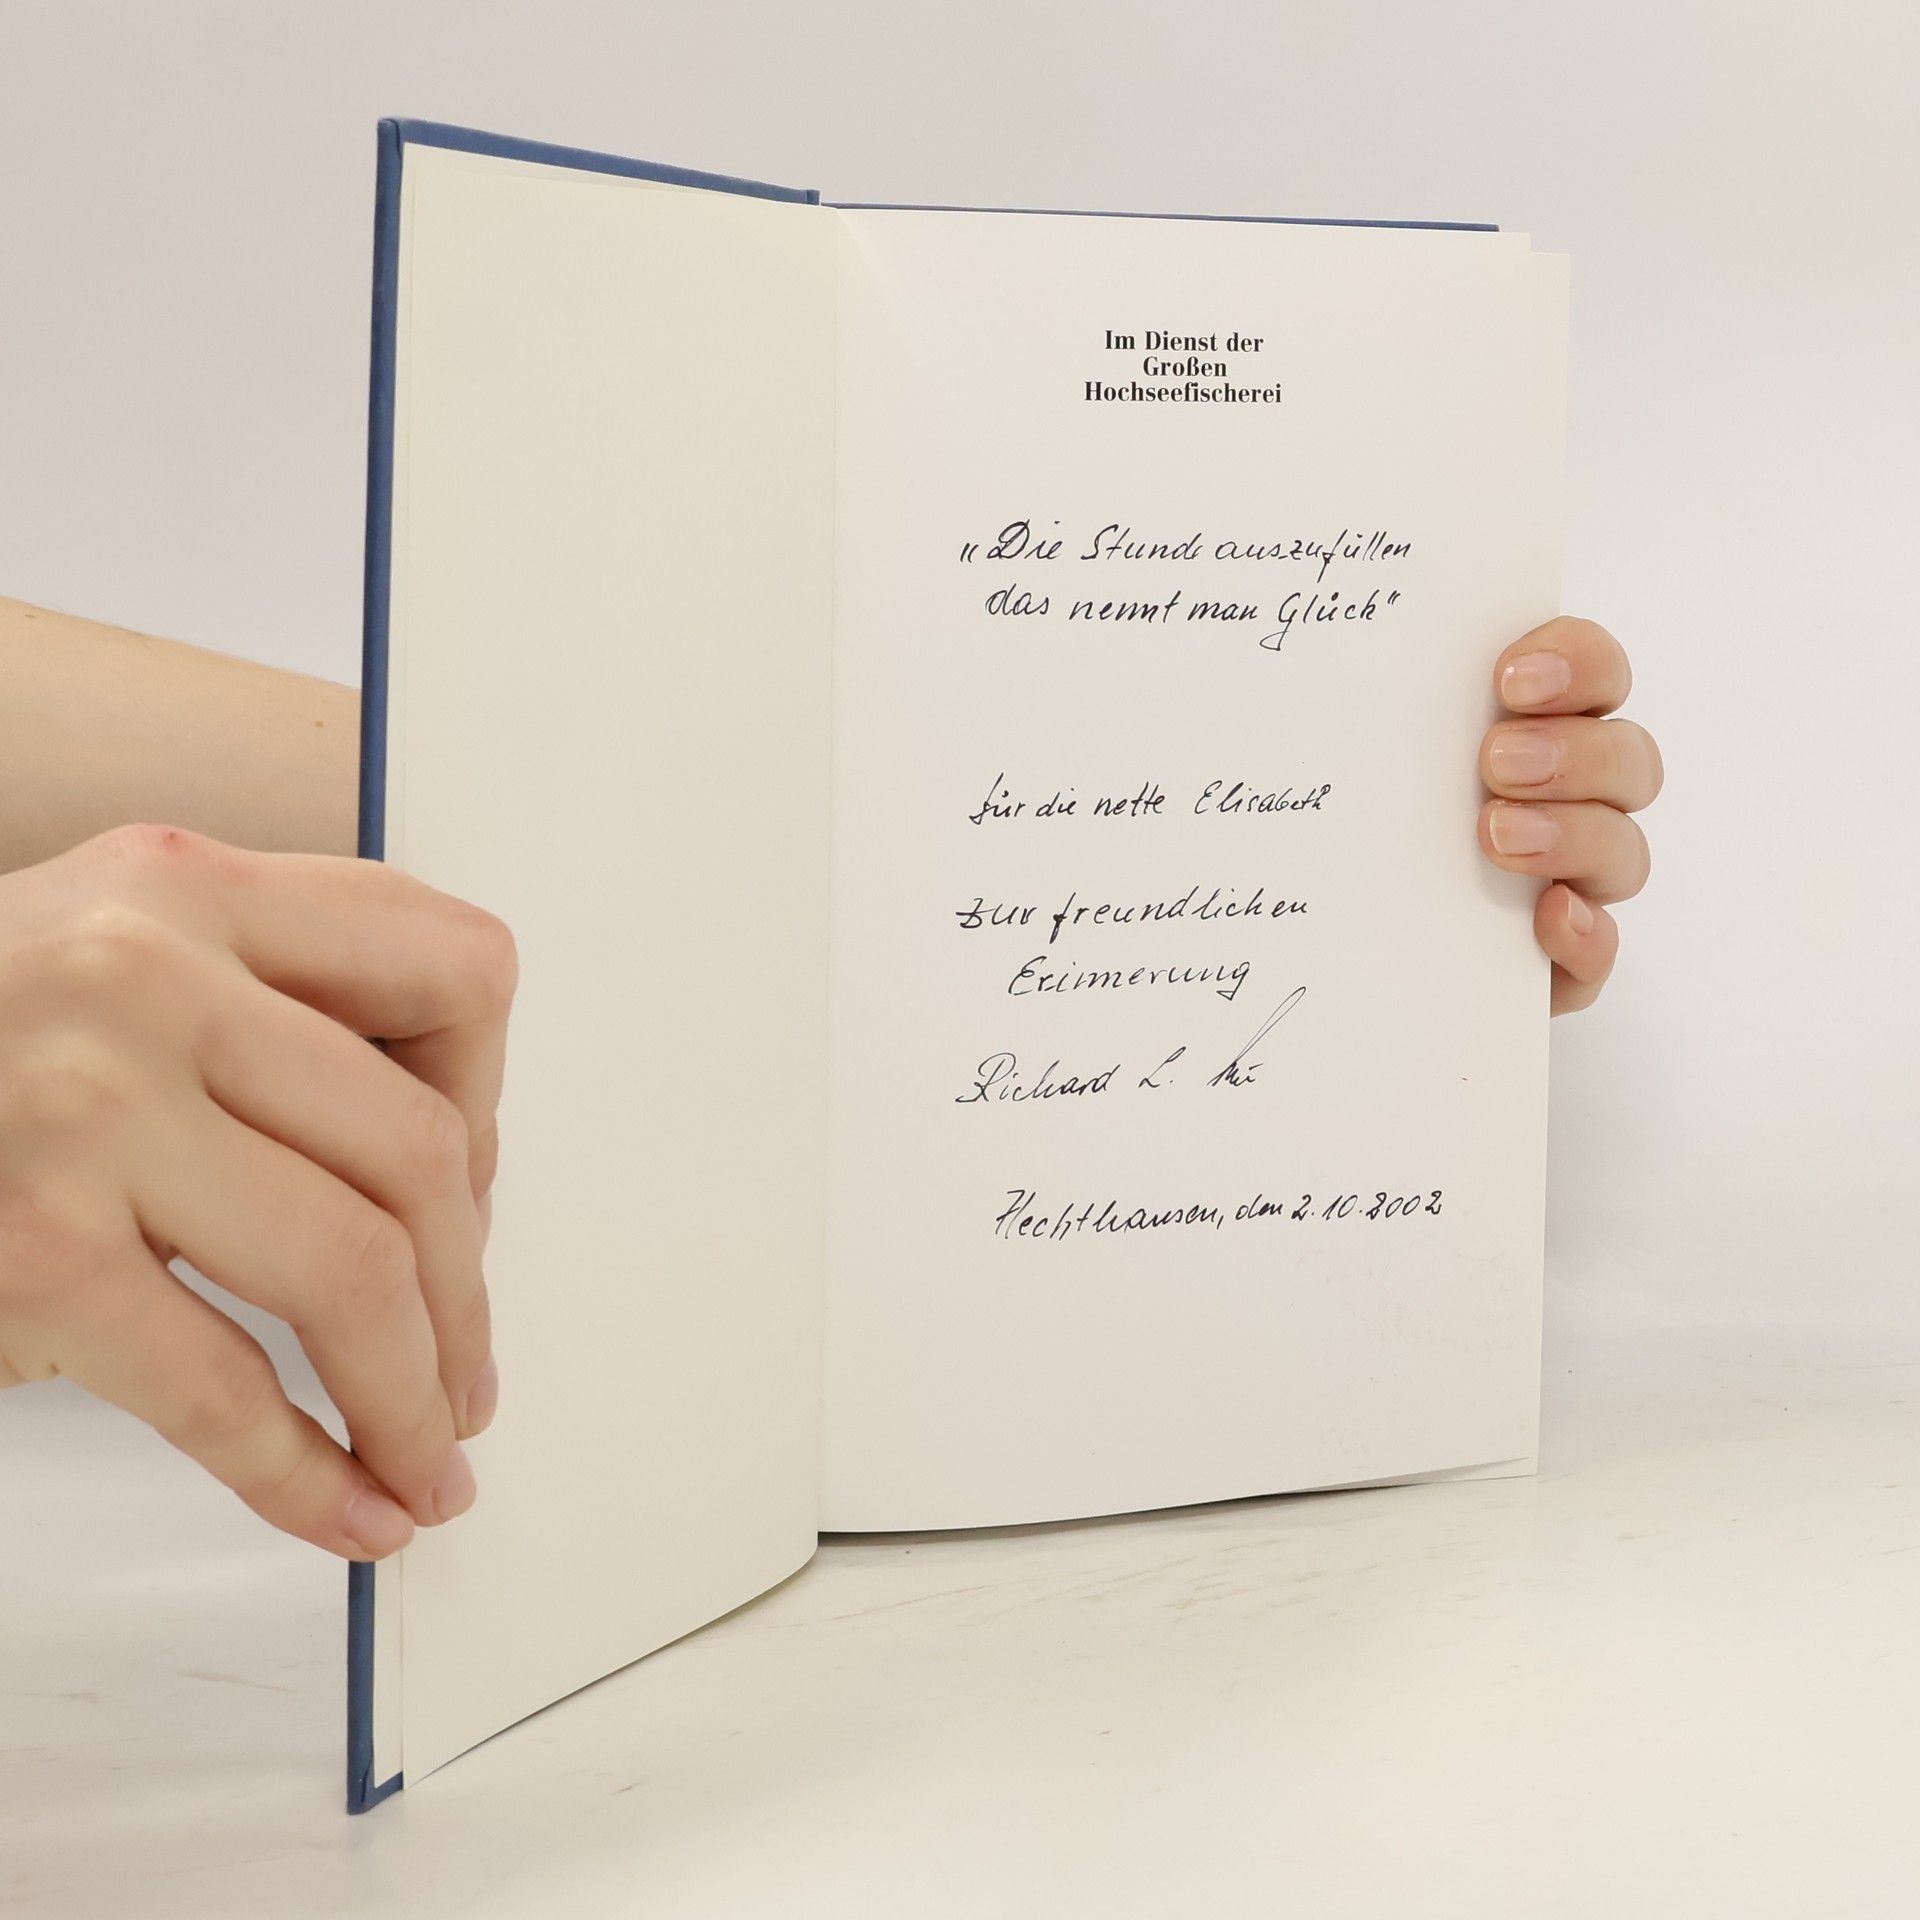 Im Dienst der
Großen
Hochseefischerei
"Die Stunde auszufüllen
das nennt man Glück"
für die nette Elisabeth
zur freundlichen
Erinnerung
Richard L.
Hechthausen, den 2.10.2002